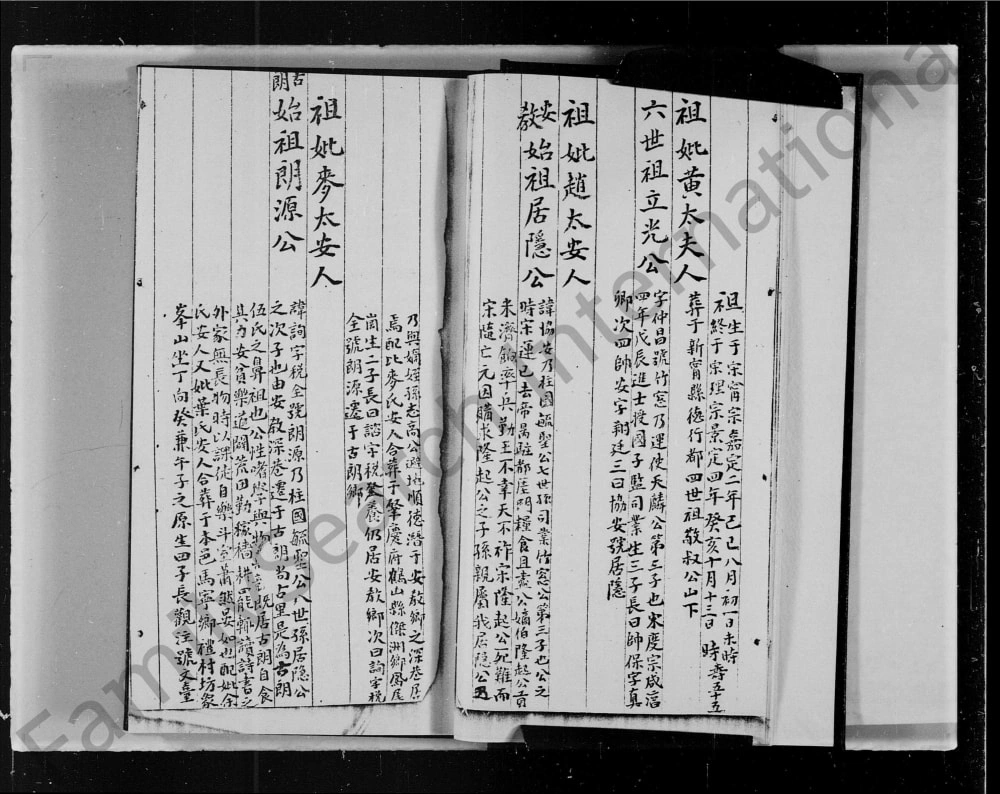 祖妣黃太夫人
祖生于宋寧宗嘉定二年己巳八月初一日未時
終于宋理宗景定四年癸亥十月十三日 時壽五十五
葬于新會縣德行都四世祖敬叔公山下
六世祖立光公
字仲昌號竹窓乃運使天麟公第三子也宋度宗咸淳
四年戊辰進士授國子監司業生三子長曰帥保字真
卿次四帥安字翔廷三曰協安號居隱
祖妣趙太安人
安教始祖居隱公
諱協安乃柱國毓聖公七世孫司業竹窓公第三子也公之
時宋運已去帝昺駐都崖門糧食且盡公嫡伯隆起公貢
米濟餉率兵勤王不幸天不祚宋隆起公死難而
宋隨亡元因購求隆起公之子孫親屬我居隱公
乃與嫡姪孫志高公避地順德潛于安教鄉之深巷居
焉配比麥氏安人合葬于肇慶府鶴山縣傑洲鄉鳳尾
崗生二子長曰諮字稅 養仍居安教鄉次曰詢字稅
全號朗源遷于古朗鄉
祖妣麥太安人
古朗始祖朗源公
諱詢字稅全號朗源乃柱國毓聖公八世孫居隱公
之次子也由安教深巷遷于古朗尚占里是為古朗
伍氏之鼻祖也公性嗜學與物 既居古朗自食
其力安貧樂道闢荒田勤稼穡耕 能 讀詩書之
外家無長物時以課徒自樂斗室蕭然晏如也配妣余
氏安人又妣葉氏安人合葬于本邑馬寧鄉禮村坊象
峯山坐丁向癸兼午子之原生四子長觀注號文臺
Family Search International